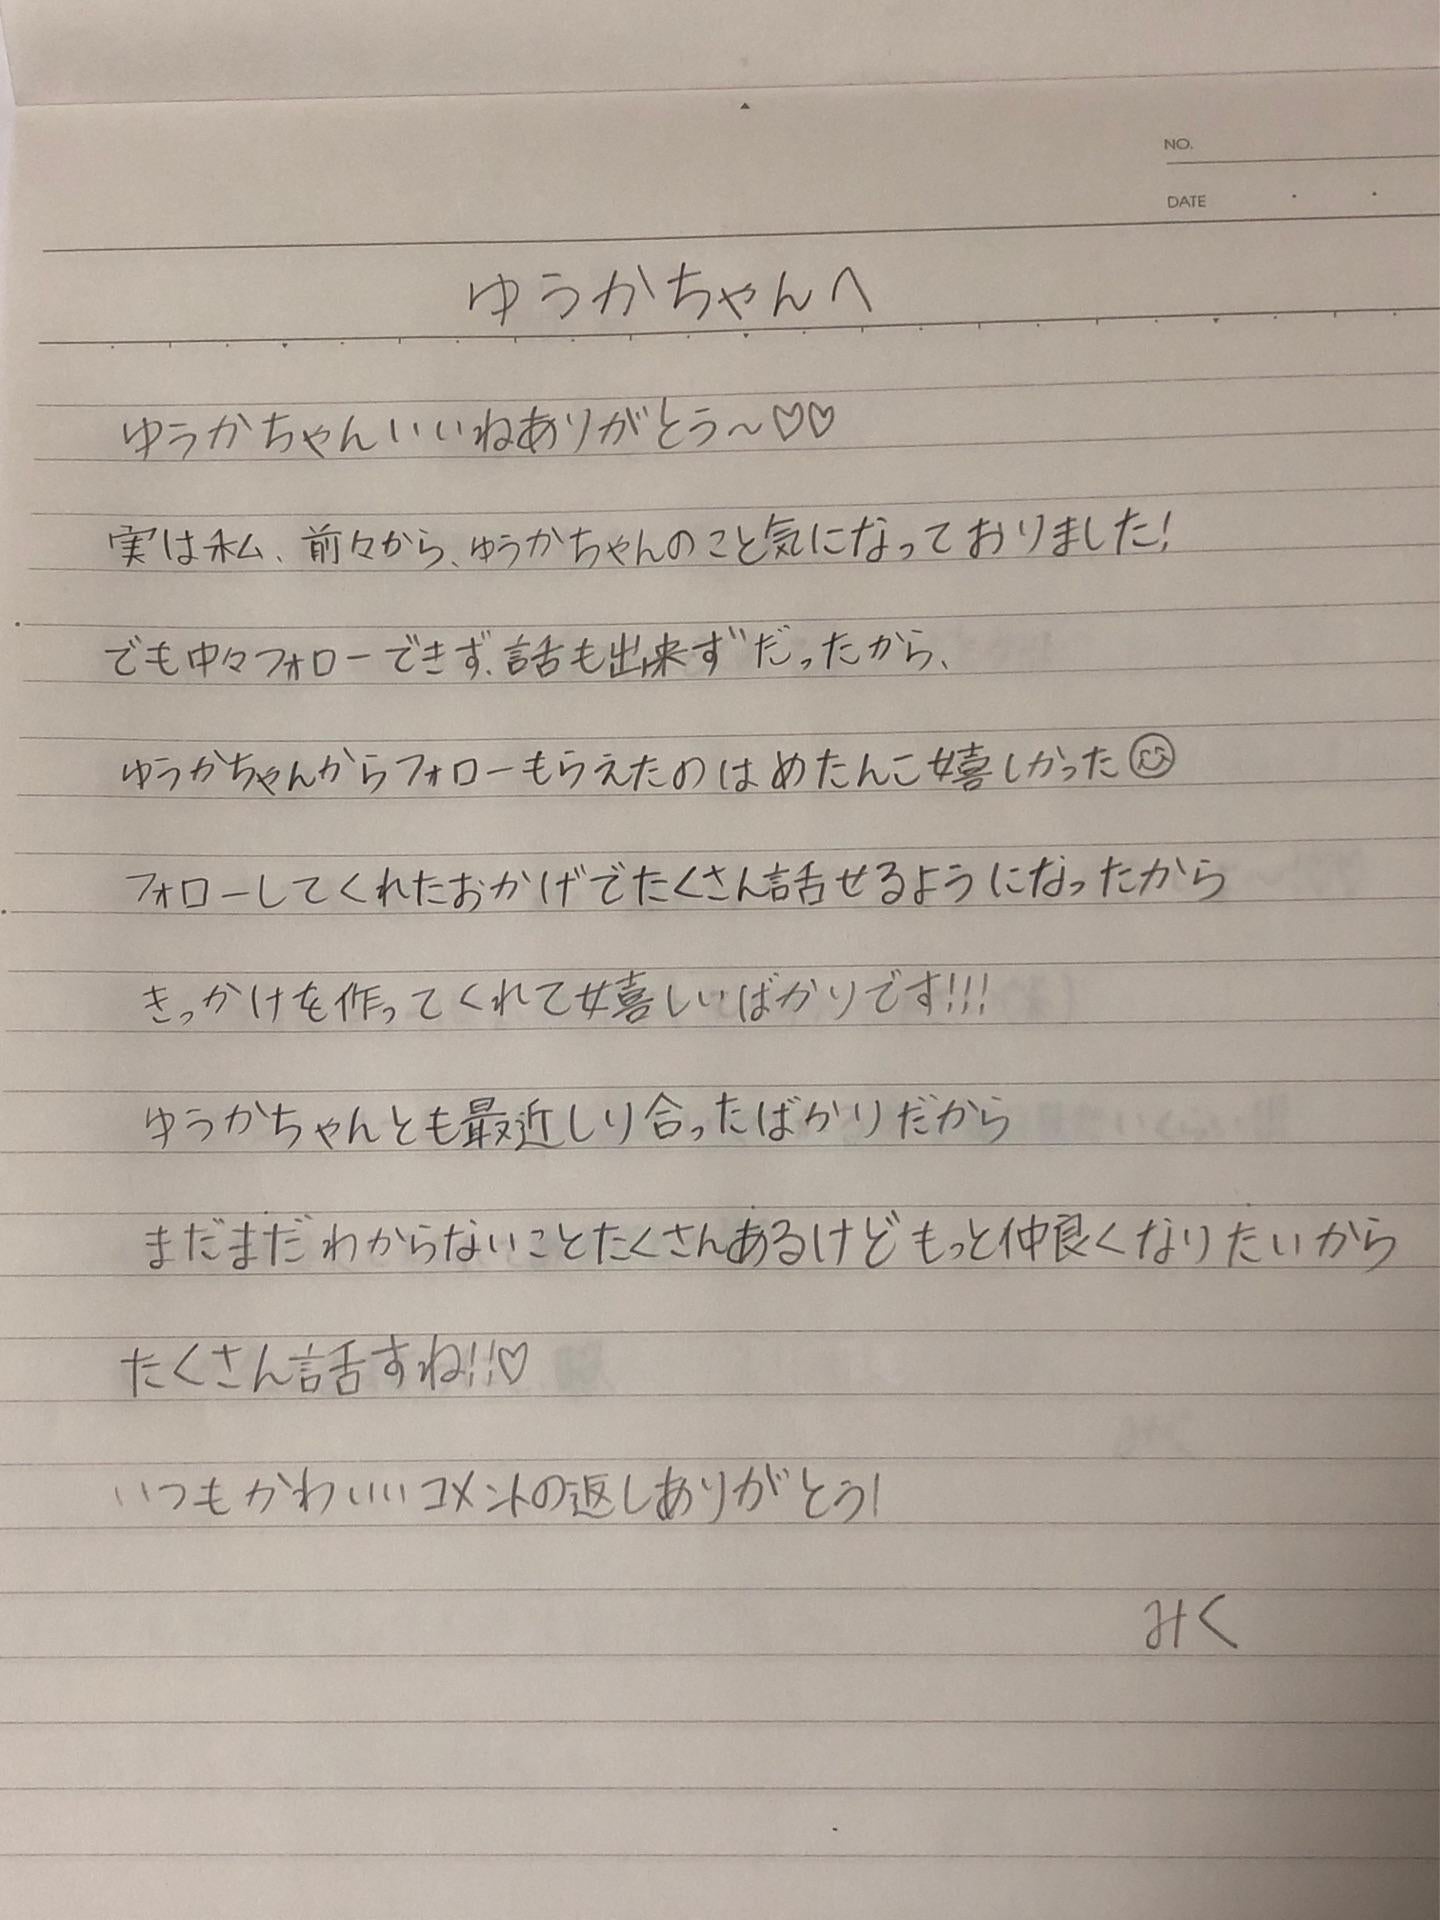 NO.
DATE
ゆうかちゃんへ
ゆうかちゃんいいねありがとう〜♡♡
実は私、前々から、ゆうかちゃんのこと気になっておりました!
でも中々フォローできず、話も出来ずだったから、
ゆうかちゃんからフォローもらえたのはめたんこ嬉しかった☺
フォローしてくれたおかげでたくさん話せるようになったから
きっかけを作ってくれて嬉しいばかりです!!!
ゆうかちゃんとも最近しり合ったばかりだから
まだまだわからないことたくさんあるけどもっと仲良くなりたいから
たくさん話すね!!♡
いつもかわいいコメントの返しありがとう!
みく